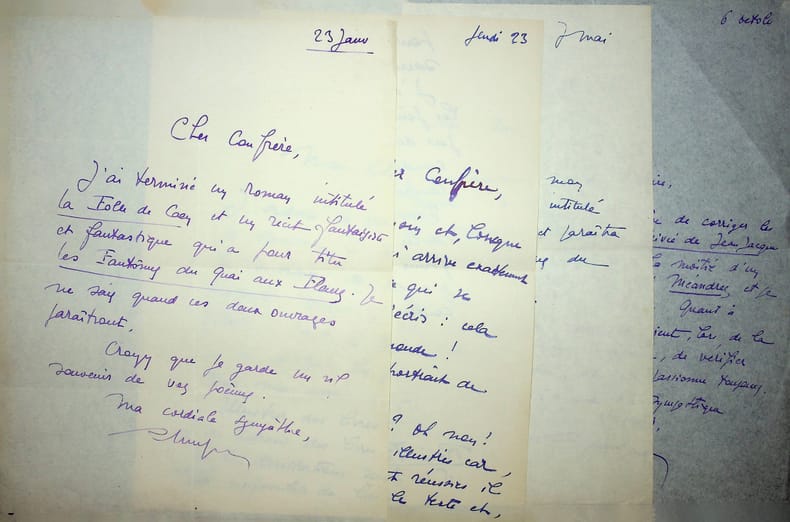 23 Janv
Cher Confrère,
J'ai terminé un roman intitulé
la Folle de Caen et un récit fantaisiste
et fantastique qui a pour titre
les Fantômes du Quai aux Fleurs. Je
ne sais quand ces deux ouvrages
paraîtront.
Croyez que je garde un vif
souvenir de vos poèmes.
Ma cordiale sympathie,
Jeudi 23
Confrère,
lorsque
arrive exactement
qui se
écris : cela
monde !
portrait de
? Oh non !
illustrés car,
réussies il
le texte et,
7 mai
mon
intitulé
et paraîtra
du
6 octobre
de corriger les
de Jean-Jacques
la moitié d'un
Méandres et je
Quant à
lors de la
, de vérifier
passionne toujours.
sympathique